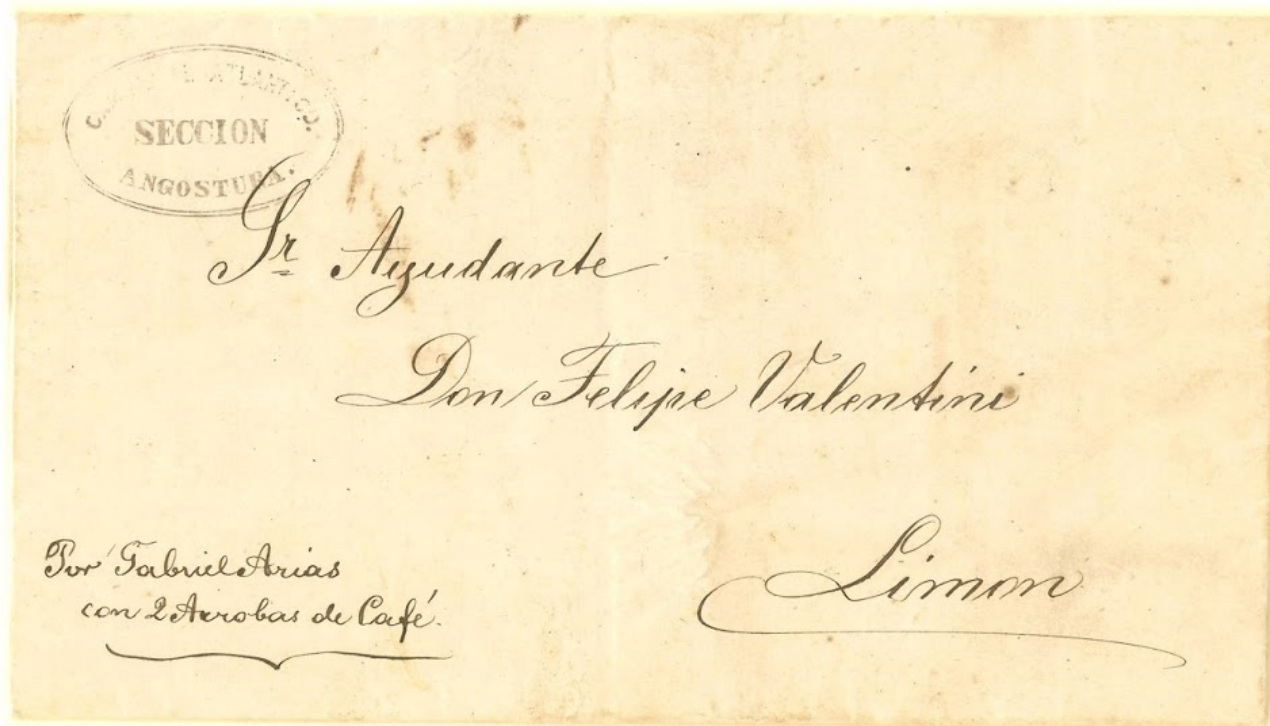 ATLANTICO.
SECCION
ANGOSTURA.
Sr Ayudante
Don Felipe Valentini
Limon
Por Gabriel Arias
con 2 Arrobas de Café.